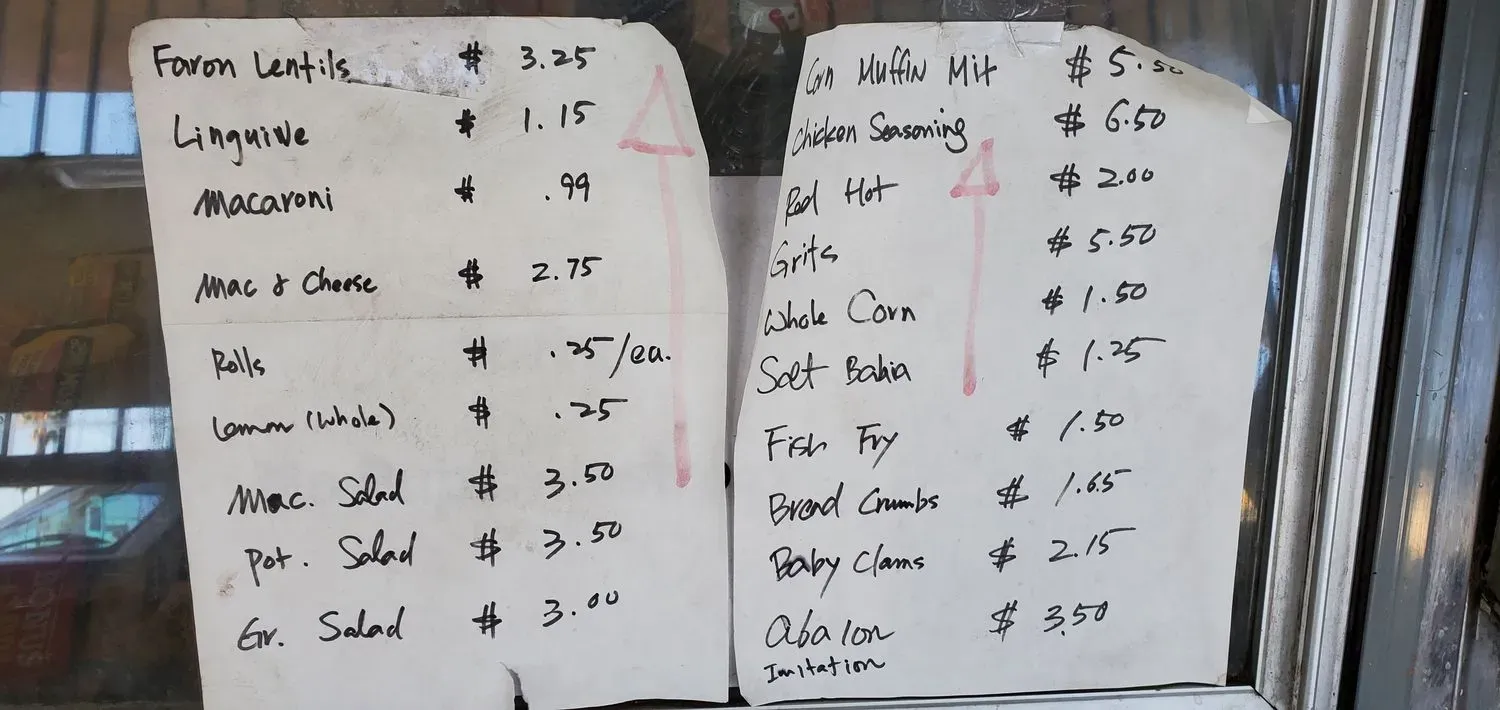 Faron Lentils $ 3.25
Linguine $ 1.15
Macaroni $ .99
Mac & Cheese $ 2.75
Rolls $ .25/ea.
Lemon (Whole) $ .25
Mac. Salad $ 3.50
Pot. Salad $ 3.50
Gr. Salad $ 3.00
Corn Muffin Mix $ 5.50
Chicken Seasoning $ 6.50
Red Hot $ 2.00
Grits $ 5.50
Whole Corn $ 1.50
Salt Bahia $ 1.25
Fish Fry $ 1.50
Bread Crumbs $ 1.65
Baby Clams $ 2.15
Abalon $ 3.50
Imitation